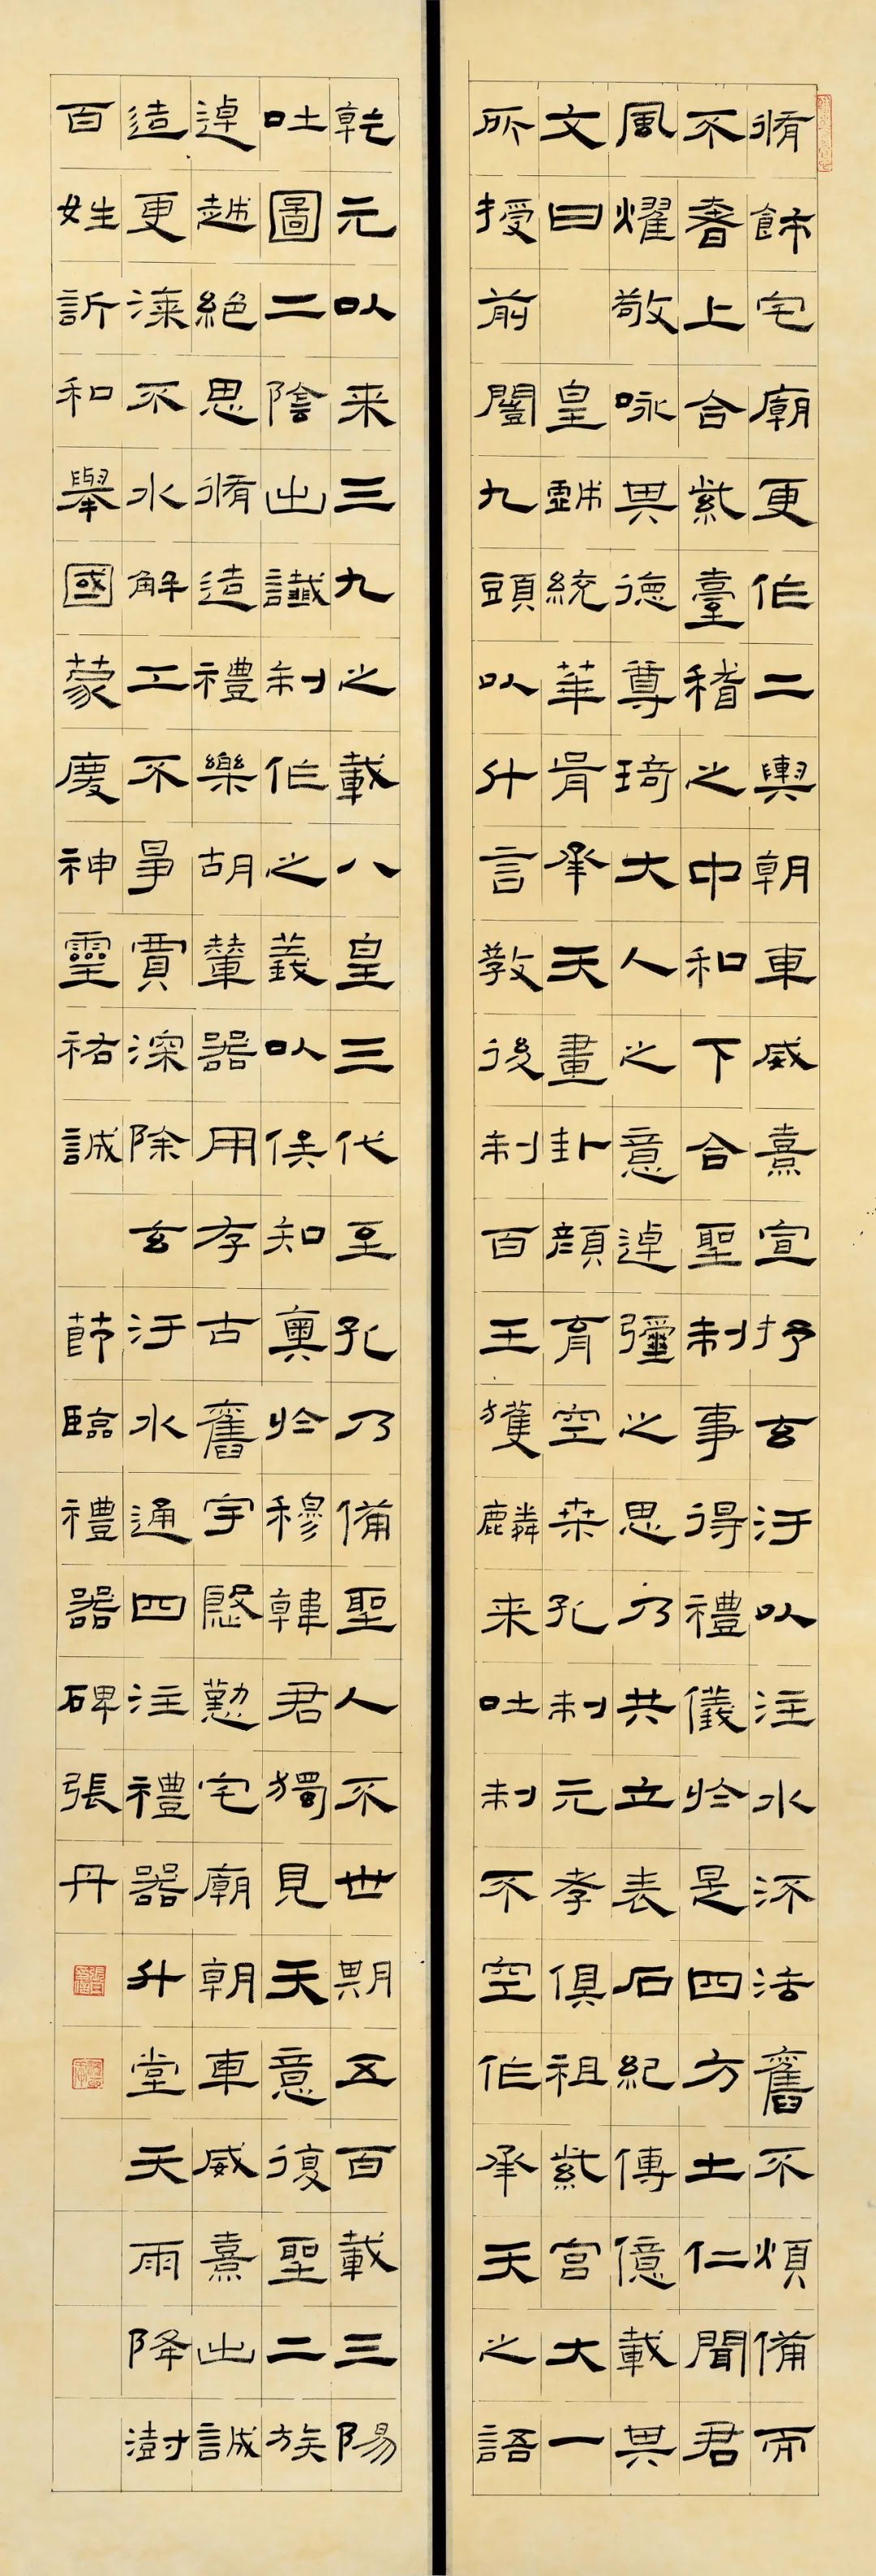 脩飾宅廟更作二輿朝車威熹宣抒玄汙以注水流法舊不煩備而
不奢上合紫臺稽之中和下合聖制事得禮儀於是四方土仁聞君
風燿敬咏其德尊琦大人之意逴彌之思乃共立表石紀傳億載其
文曰 皇戲統華胥承天畫卦顏育空桑孔制元孝俱祖紫宮大一
所授前闓九頭以什言教後制百王獲麟来吐制不空作承天之語
乾元以来三九之載八皇三代至孔乃備聖人不世期五百載三陽
吐圖二陰出讖制作之義以俟知奧於穆韓君獨見天意復聖二族
逴越絕思脩造禮樂胡輦器用存古舊宇慇懃宅廟朝車威熹出誠
造更漆不水解工不爭賈深除玄汙水通四注禮器升堂天雨降澍
百姓訢和舉國蒙慶神靈祐誠 節臨禮器碑張丹